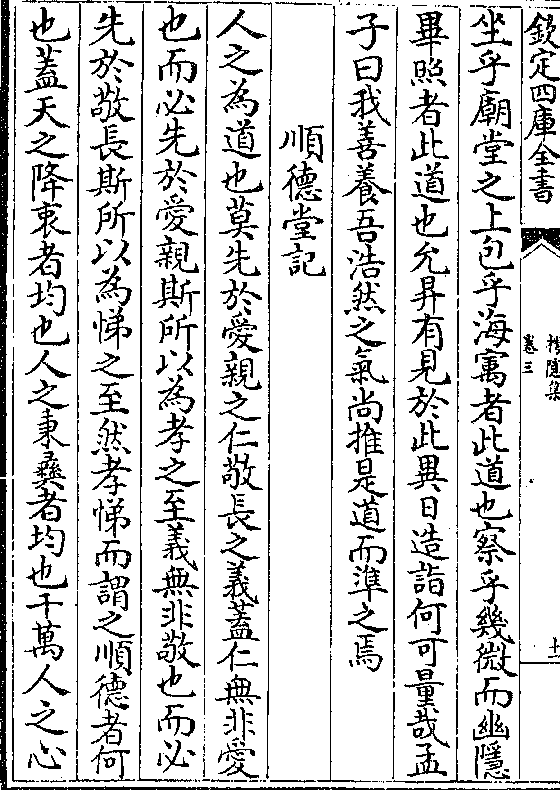 欽定四庫全書
卷三
坐乎廟堂之上包乎海㝢者此道也察乎幾微而幽隱
畢照者此道也允昇有見於此異日造詣何可量哉孟
子曰我善養吾浩然之氣尚推是道而準之焉
順德堂記
人之為道也莫先於愛親之仁敬長之義蓋仁無非愛
也而必先於愛親斯所以為孝之至義無非敬也而必
先於敬長斯所以為悌之至然孝悌而謂之順德者何
也蓋天之降衷者均也人之秉彝者均也千萬人之心